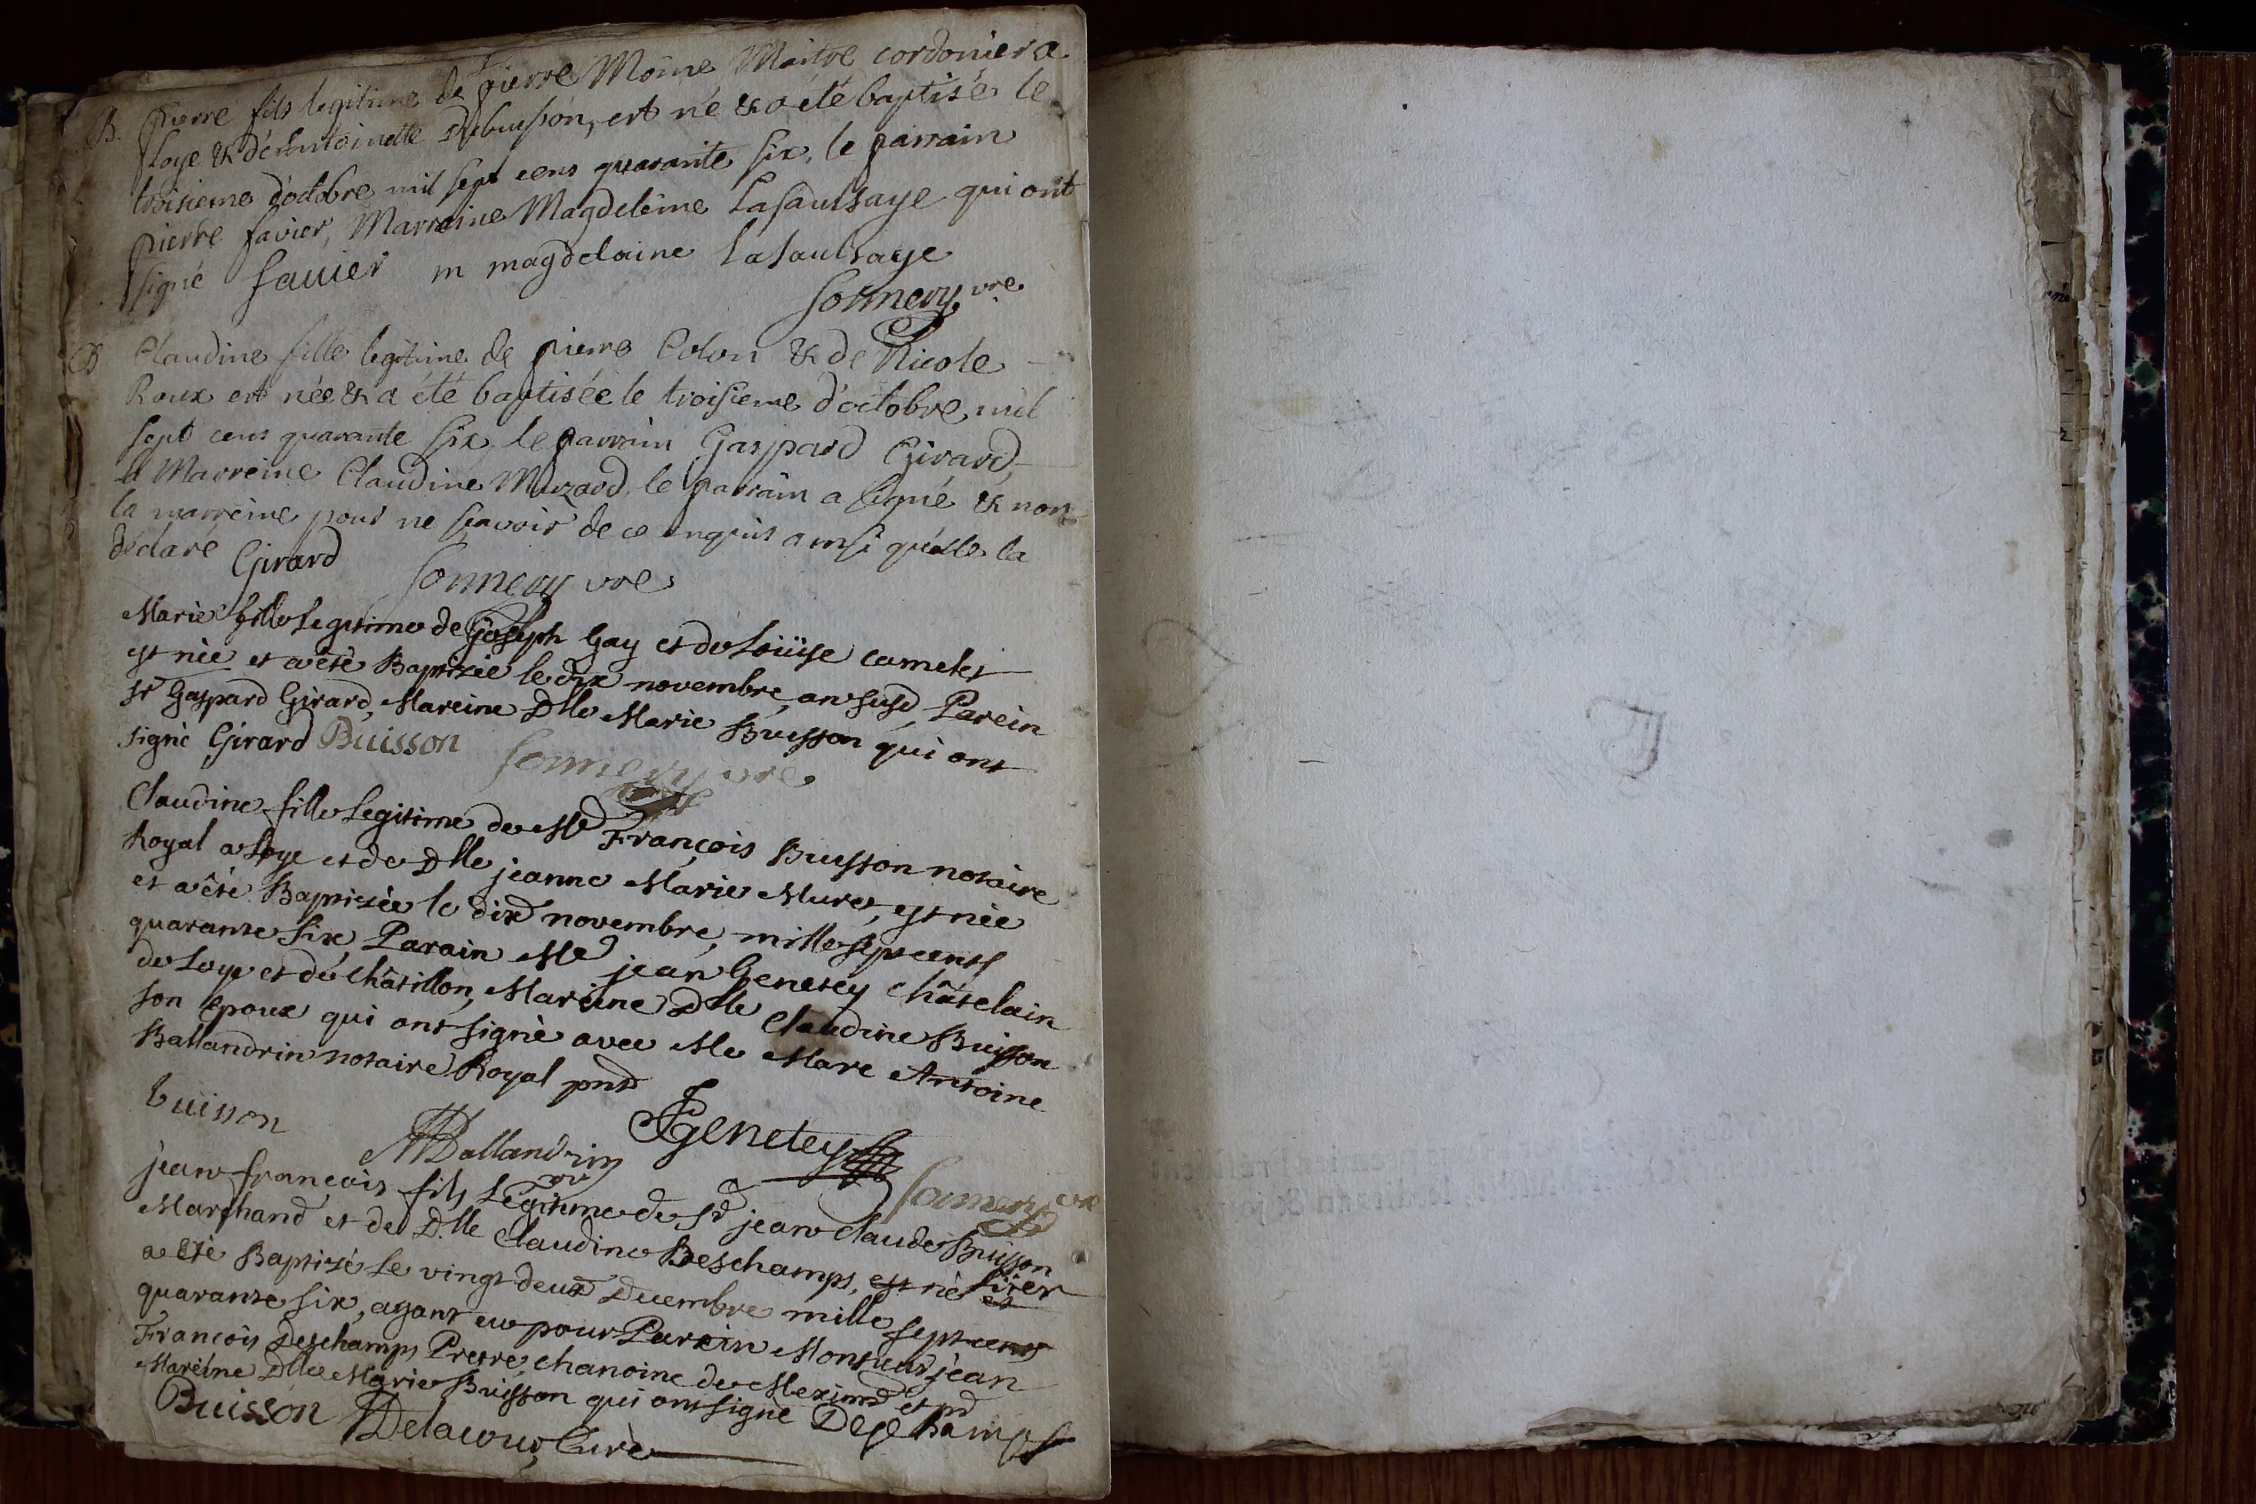 B. pierre fils legitime de pierre Moine Maitre cordonier a
Loye & d'Antoinette Debuisson, est né & a eté baptisé le
troisieme d'octobre mil sept cens quarante six, le parrain
pierre favier, Marraine Magdeleine Lasaulsaye qui ont
signé favier m magdelaine lasaulsaye
Sonnery vre
B Claudine fille legitime de pierre Colon & de Nicole
Roux est née & a été baptisée le troisieme d'octobre mil
sept cens quarante six le parrain Gaspard Girard,
la Marreine Claudine Muzard, le parrain a signé & non
la marreine pour ne sçavoir de ce enquis ainsi qu'elle la
declaré Girard Sonnery vre
Marie fille Legitime de Joseph Gay et de Loüise
est nèe et a êtè Baptizèe le dix novembre, an susd, Parein
Sr Gaspard Girard, Mareine Dlle Marie Buisson qui ont
signè Girard Buisson Sonnery vre
Claudine fille Legitime de Me François Buisson notaire
Royal a Loye et de Dlle jeanne Marie Muret, est nèe
et a êtè Baptizèe le dix novembre, mille sept cents
quarante six, Parain Me jean Genetey Châtelain
de Loye et de Châtillon, Mareine Dlle Claudine Buisson
son epoux qui ont signè avec Me Marc Antoine
Ballandrin notaire Royal pnt
buisson MABallandrin Jgenetey
Sonnery vre
jean françois fils Legitime de Sr jean Claude Buisson
Marchand et de D.lle Claudine Deschamps, est nè hier et
a êtè Baptizè Le vingt deux Decembre mille sept cents
quarante six, ayant eu pour Parein Monsieur jean
François Deschamps Pretre, chanoine de Meximd et pr
Mareine Dlle Marie Buisson qui ont signè Deschamps
Buisson Delacour, Curè